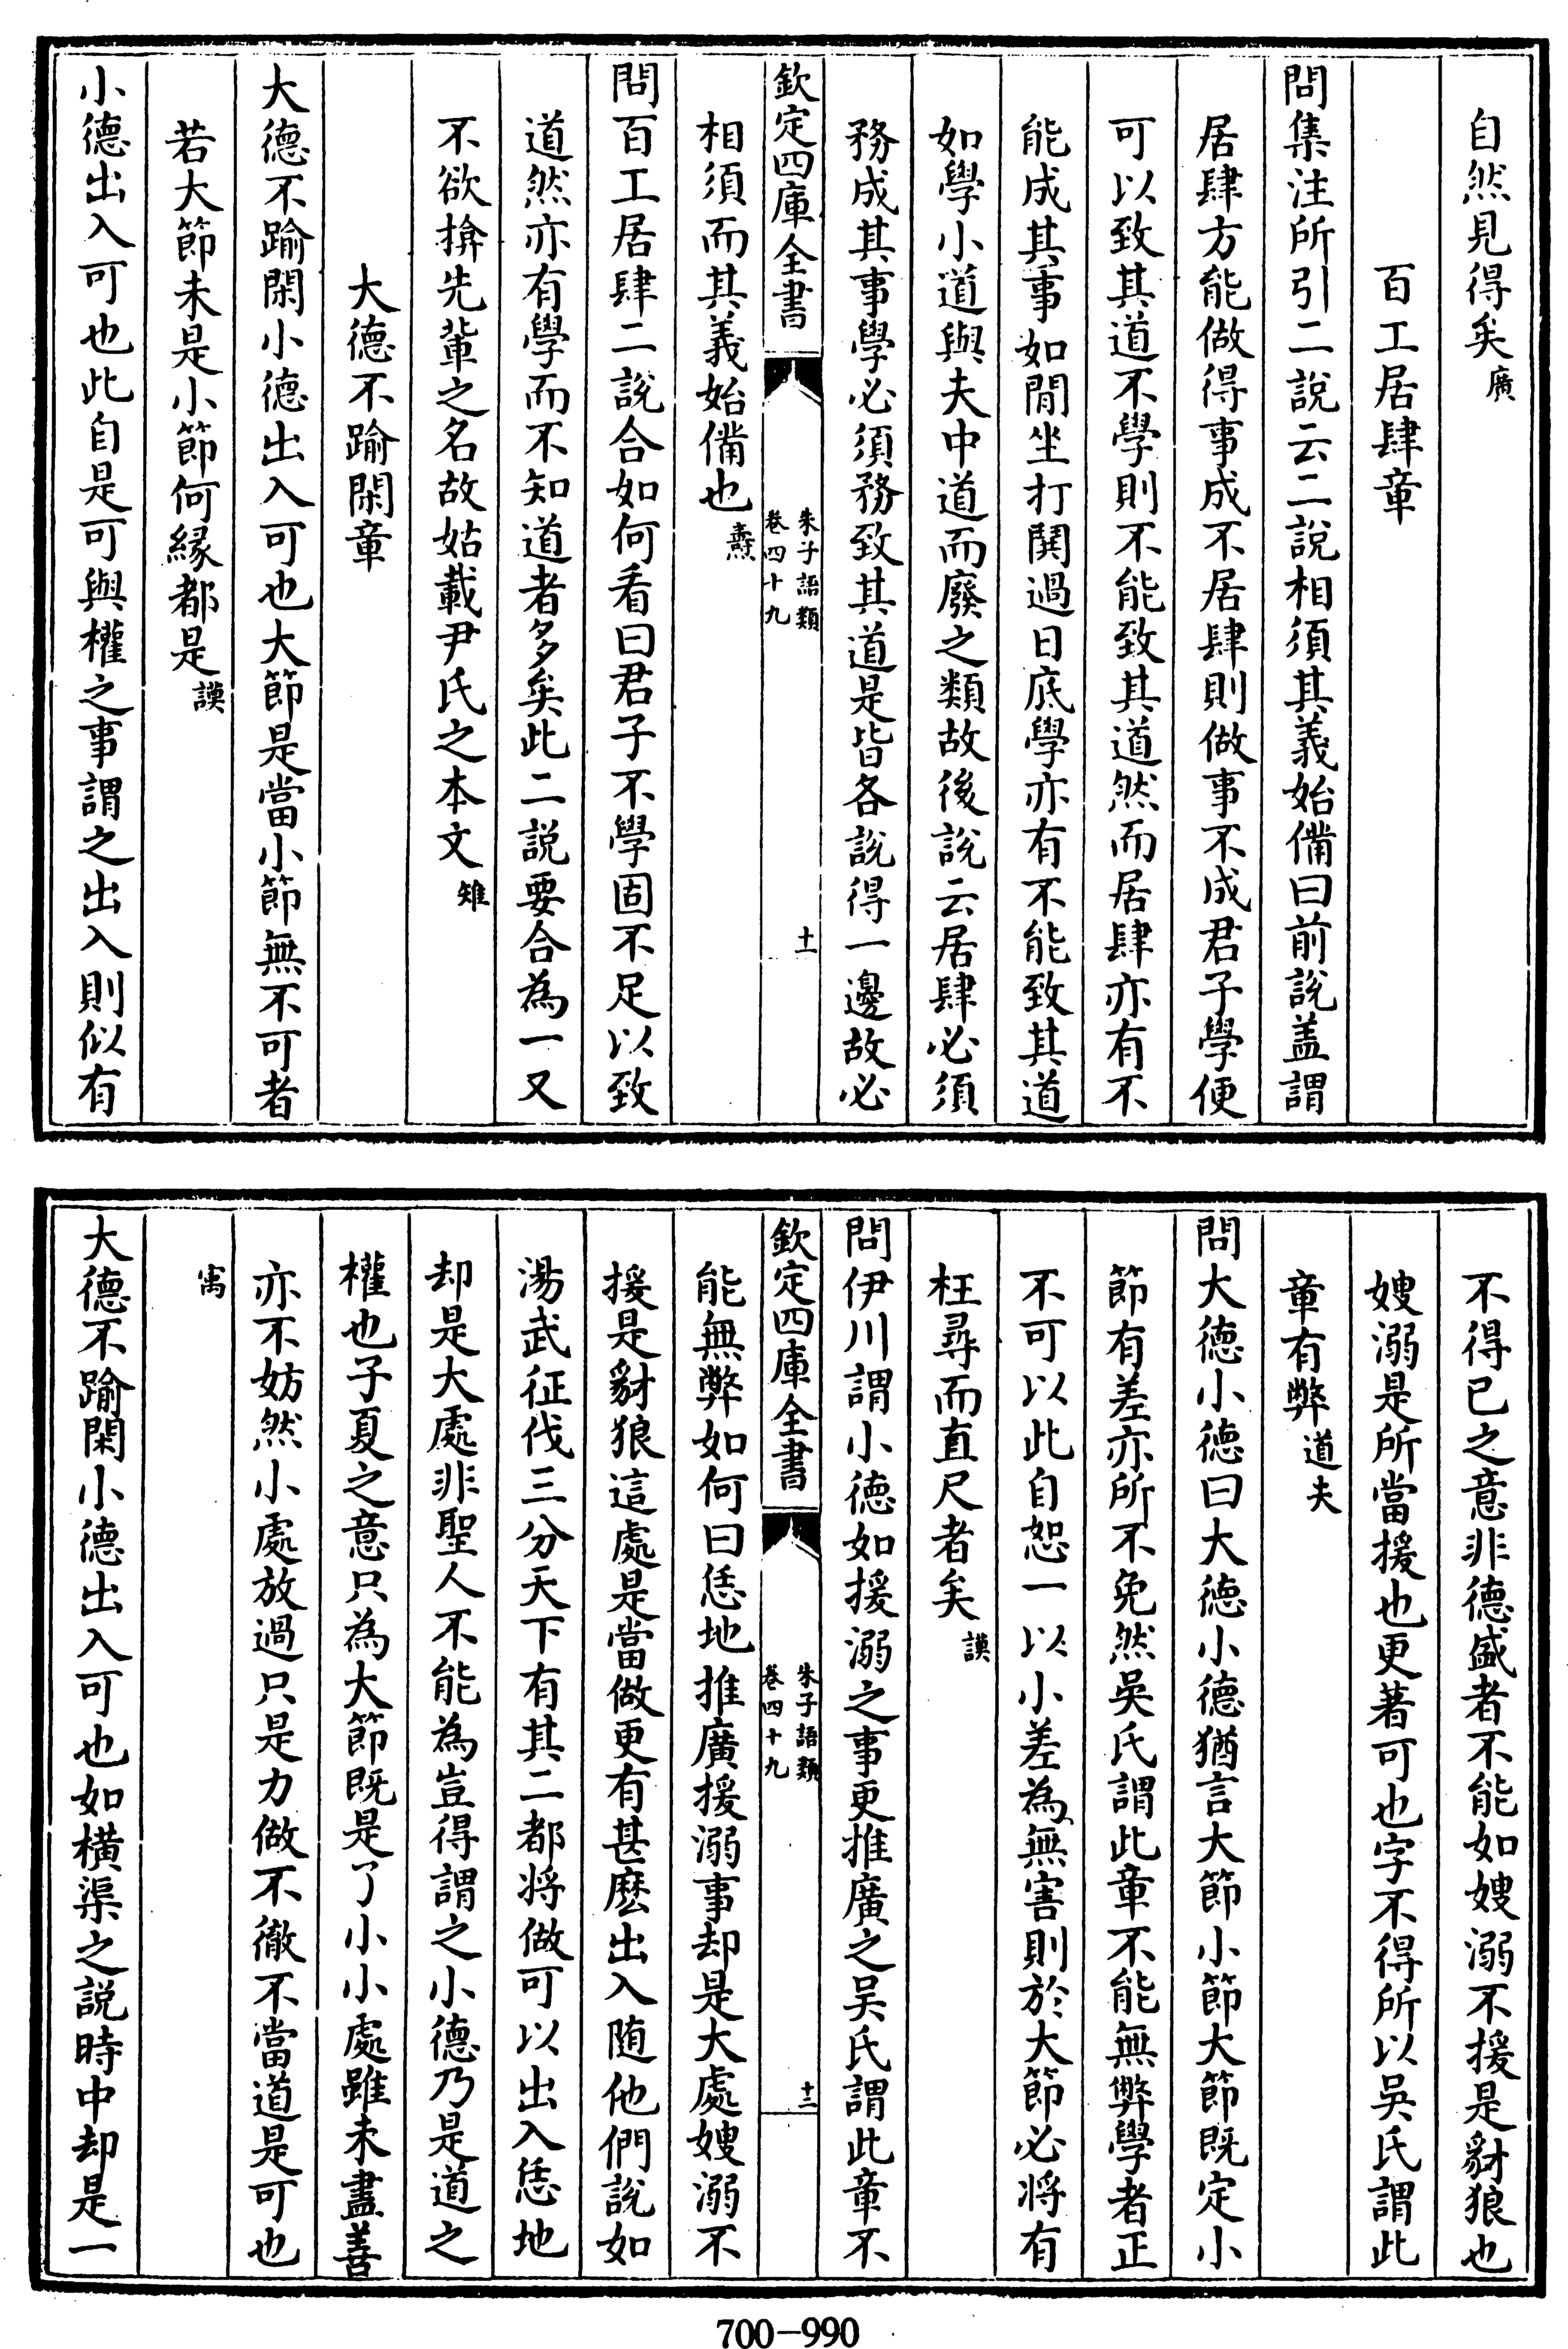 自然見得矣廣
百工居肆章
問集注所引二說云二說相須其義始備曰前說盖謂
居肆方能做得事成不居肆則做事不成君子學便
可以致其道不學則不能致其道然而居肆亦有不
能成其事如閒坐打鬨過日底學亦有不能致其道
如學小道與夫中道而廢之類故後說云居肆必須
務成其事學必須務致其道是皆各說得一邊故必
欽定四庫全書
朱子語類
卷四十九
十一
相須而其義始備也燾
問百工居肆二說合如何看曰君子不學固不足以致
道然亦有學而不知道者多矣此二説要合為一又
不欲揜先輩之名故姑載尹氏之本文雉
大德不踰閑章
大德不踰閑小德出入可也大節是當小節無不可者
若大節未是小節何縁都是謨
小德出入可也此自是可與權之事謂之出入則似有
不得已之意非德盛者不能如嫂溺不援是豺狼也
嫂溺是所當援也更著可也字不得所以吳氏謂此
章有弊道夫
問大德小德曰大德小德猶言大節小節大節既定小
節有差亦所不免然吳氏謂此章不能無弊學者正
不可以此自恕一以小差為無害則於大節必將有
枉尋而直尺者矣謨
問伊川謂小德如援溺之事更推廣之吴氏謂此章不
欽定四庫全書
朱子語類
卷四十九
十二
能無弊如何曰恁地推廣援溺事却是大處嫂溺不
援是豺狼這處是當做更有甚麽出入随他們說如
湯武征伐三分天下有其二都将做可以出入恁地
却是大處非聖人不能為豈得謂之小德乃是道之
權也子夏之意只為大節既是了小小處雖未盡善
亦不妨然小處放過只是力做不徹不當道是可也
㝢
大德不踰閑小德出入可也如横渠之説時中却是一
700-990